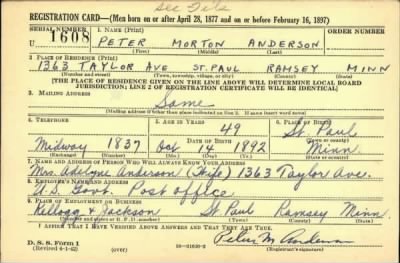 See File
REGISTRATION CARD—(Men born on or after April 28, 1877 and on or before February 16, 1897)
SERIAL NUMBER 1. NAME (Print) ORDER NUMBER
U 1608 PETER MORTON ANDERSON
(First) (Middle) (Last)
2. PLACE OF RESIDENCE (Print)
1363 TAYLOR AVE ST. PAUL RAMSEY MINN
(Number and street) (Town, township, village, or city) (County) (State)
[THE PLACE OF RESIDENCE GIVEN ON THE LINE ABOVE WILL DETERMINE LOCAL BOARD
JURISDICTION; LINE 2 OF REGISTRATION CERTIFICATE WILL BE IDENTICAL]
3. MAILING ADDRESS
Same
[Mailing address if other than place indicated on line 2. If same insert word same]
4. TELEPHONE 5. AGE IN YEARS 6. PLACE OF BIRTH
49 St. Paul
DATE OF BIRTH (Town or county)
Midway 1837 Oct 14 1892 Minn.
(Exchange) (Number) (Mo.) (Day) (Yr.) (State or country)
7. NAME AND ADDRESS OF PERSON WHO WILL ALWAYS KNOW YOUR ADDRESS
Mrs. Adelyne Anderson (Wife) 1363 Taylor Ave.
8. EMPLOYER'S NAME AND ADDRESS
U.S. Govt. Post Office
9. PLACE OF EMPLOYMENT OR BUSINESS
Kellogg & Jackson St. Paul Ramsey Minn.
(Number and street or R. F. D. number) (Town) (County) (State)
I AFFIRM THAT I HAVE VERIFIED ABOVE ANSWERS AND THAT THEY ARE TRUE.
Peter M Anderson
D. S. S. Form 1
(Revised 4-1-42) (over) (Registrant's signature)